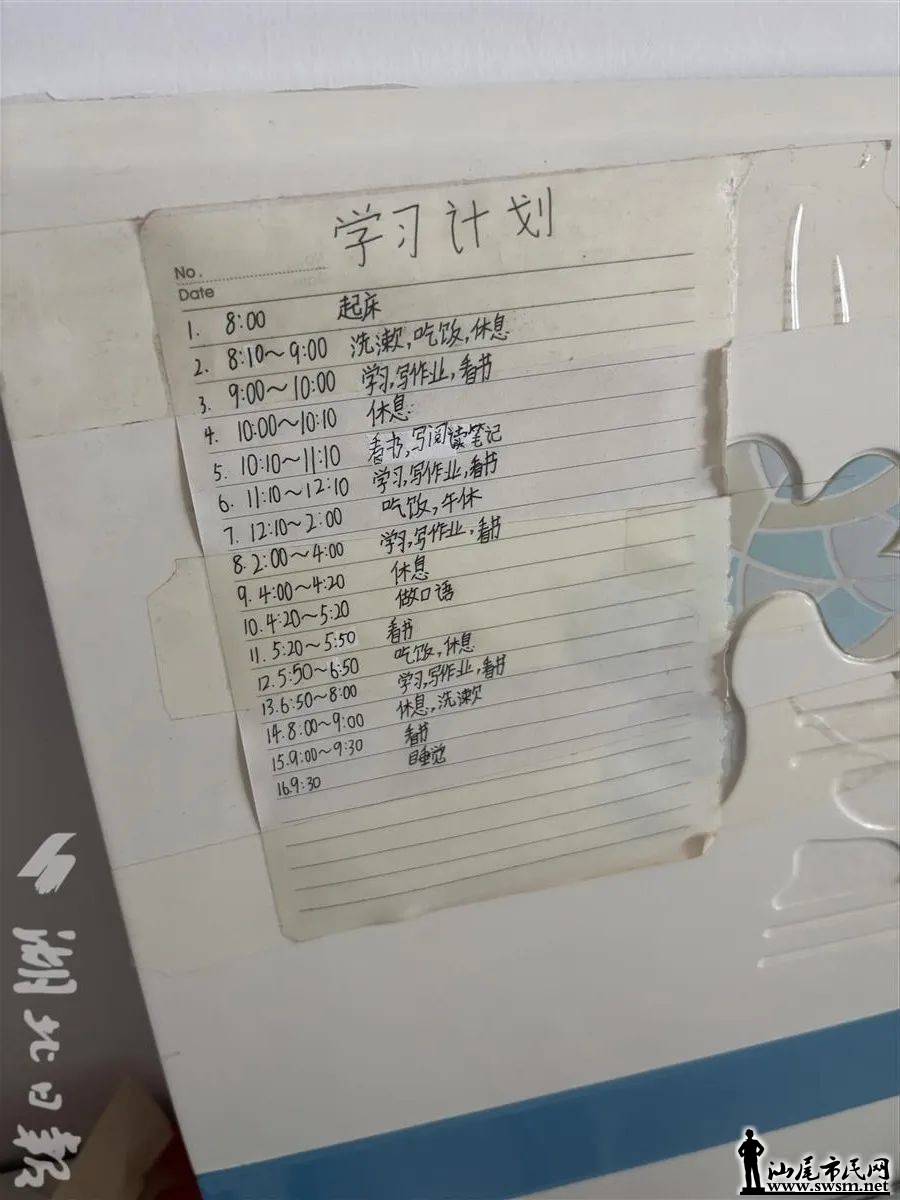 学习计划
No.
Date
1. 8:00 起床
2. 8:10～9:00 洗漱,吃饭,休息
3. 9:00～10:00 学习,写作业,看书
4. 10:00～10:10 休息
5. 10:10～11:10 看书,写阅读笔记
6. 11:10～12:10 学习,写作业,看书
7. 12:10～2:00 吃饭,午休
8. 2:00～4:00 学习,写作业,看书
9. 4:00～4:20 休息
10. 4:20～5:20 做口语
11. 5:20～5:50 看书
12. 5:50～6:50 吃饭,休息
13. 6:50～8:00 学习,写作业,看书
14. 8:00～9:00 休息,洗漱
15. 9:00～9:30 看书
16. 9:30 睡觉
湖北日报
汕尾市民网
www.swsm.net